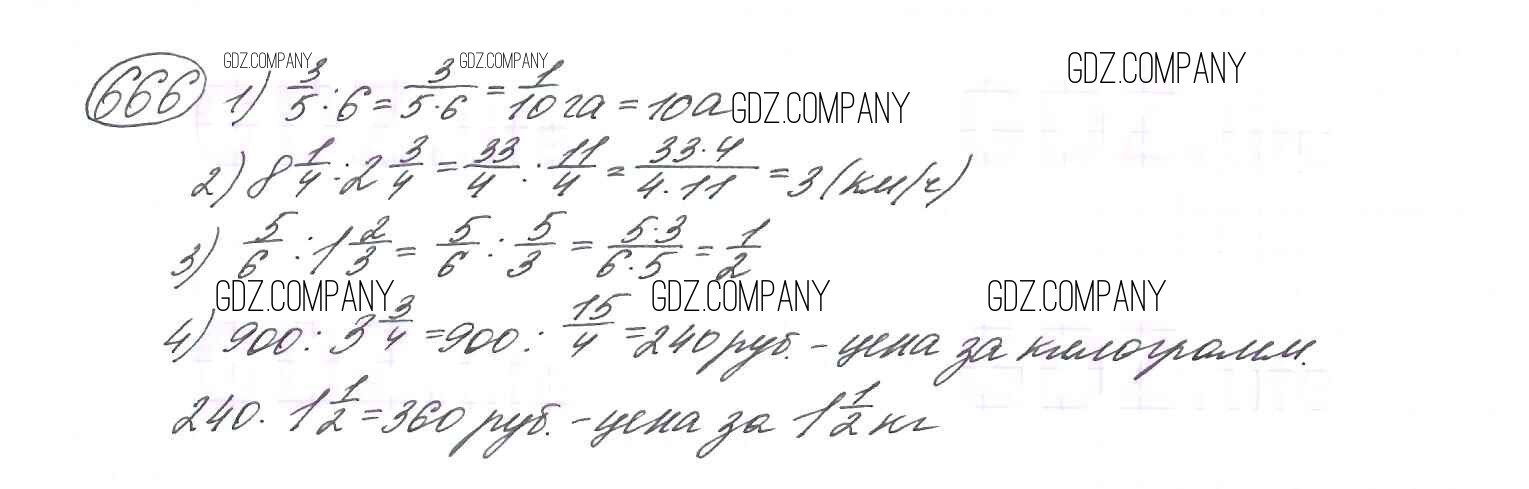 GDZ.COMPANY GDZ.COMPANY GDZ.COMPANY
666 1) 3/5 : 6 = 3/(5·6) = 1/10 га = 10а GDZ.COMPANY
2) 8 1/4 : 2 3/4 = 33/4 : 11/4 = (33·4)/(4·11) = 3 (км/ч)
3) 5/6 : 1 2/3 = 5/6 : 5/3 = (5·3)/(6·5) = 1/2
GDZ.COMPANY GDZ.COMPANY GDZ.COMPANY
4) 900 : 3 3/4 = 900 : 15/4 = 240 руб. - цена за килограмм.
240 · 1 1/2 = 360 руб. - цена за 1 1/2 кг